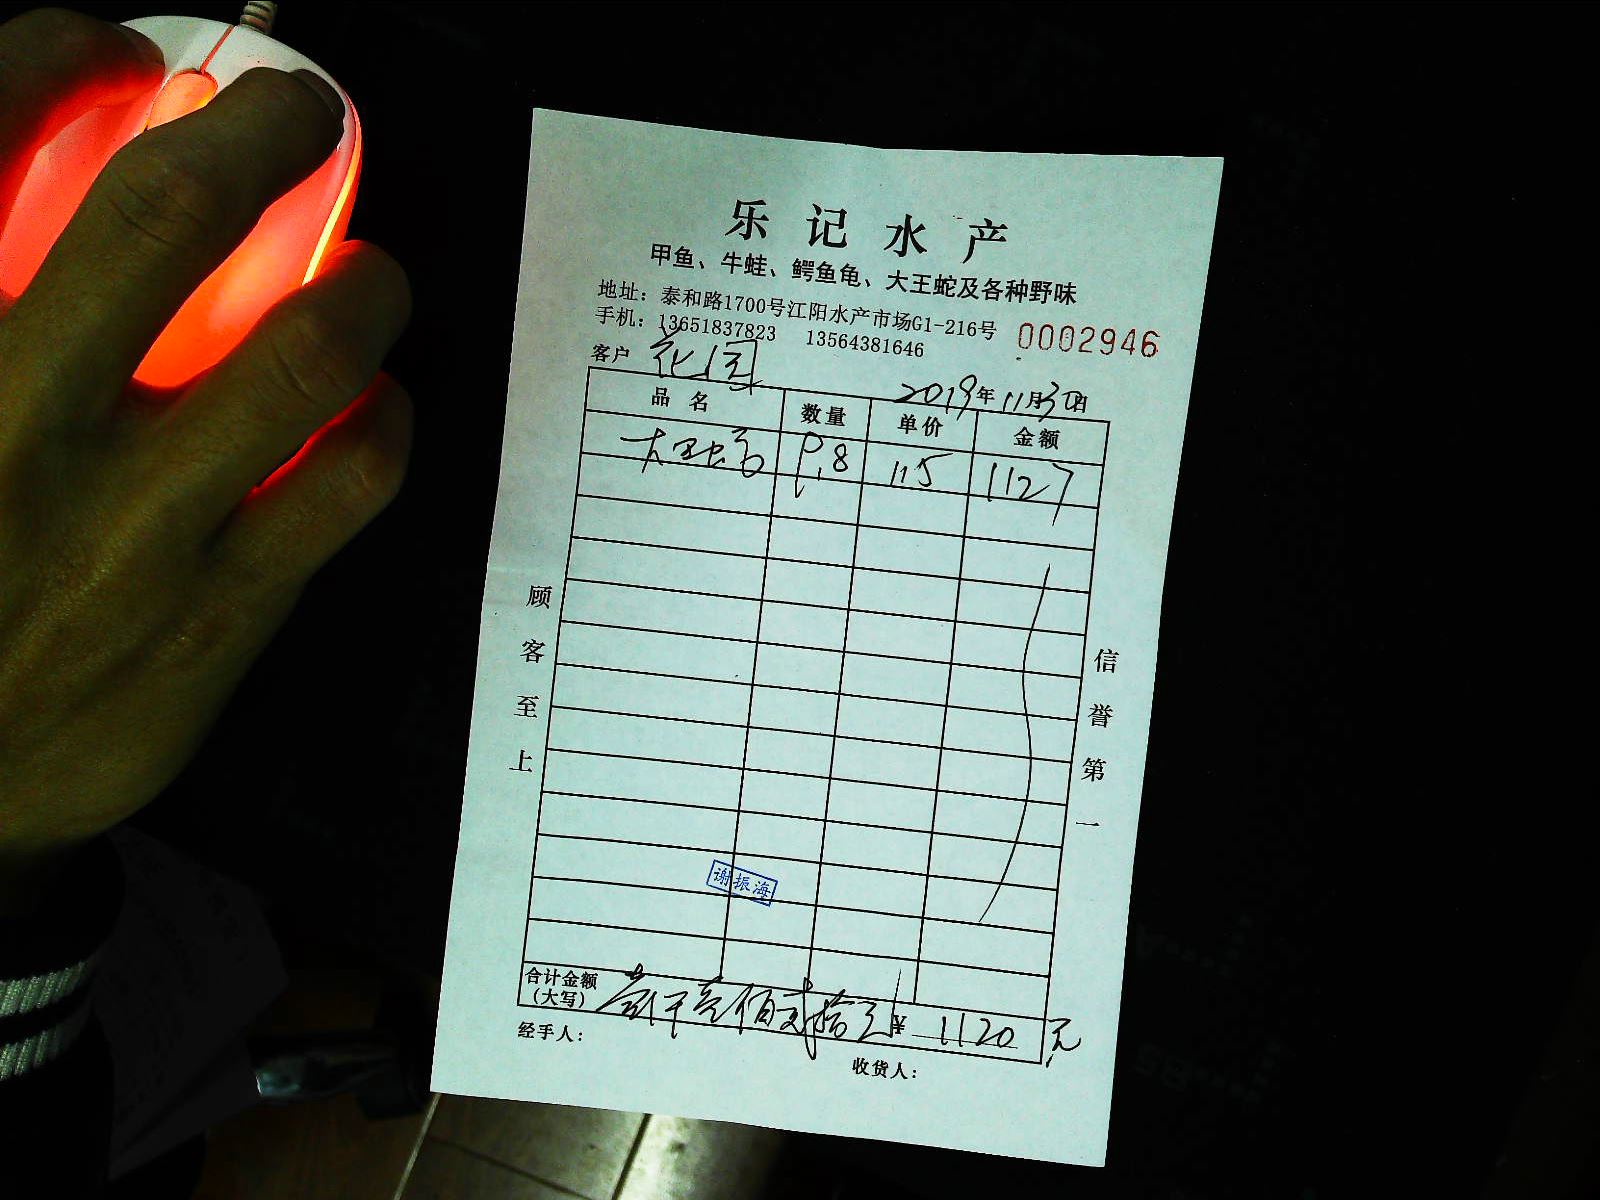 乐记水产
甲鱼、牛蛙、鳄鱼龟、大王蛇及各种野味
地址：泰和路1700号江阳水产市场G1-216号
手机：13651837823 13564381646
0002946
客户 花园
2019年11月30日
品名 数量 单价 金额
大王蛇 9.8 115 1127
顾客至上
信誉第一
谢振海
合计金额 壹仟壹佰贰拾元 ¥ 1120 元
（大写）
经手人：
收货人：